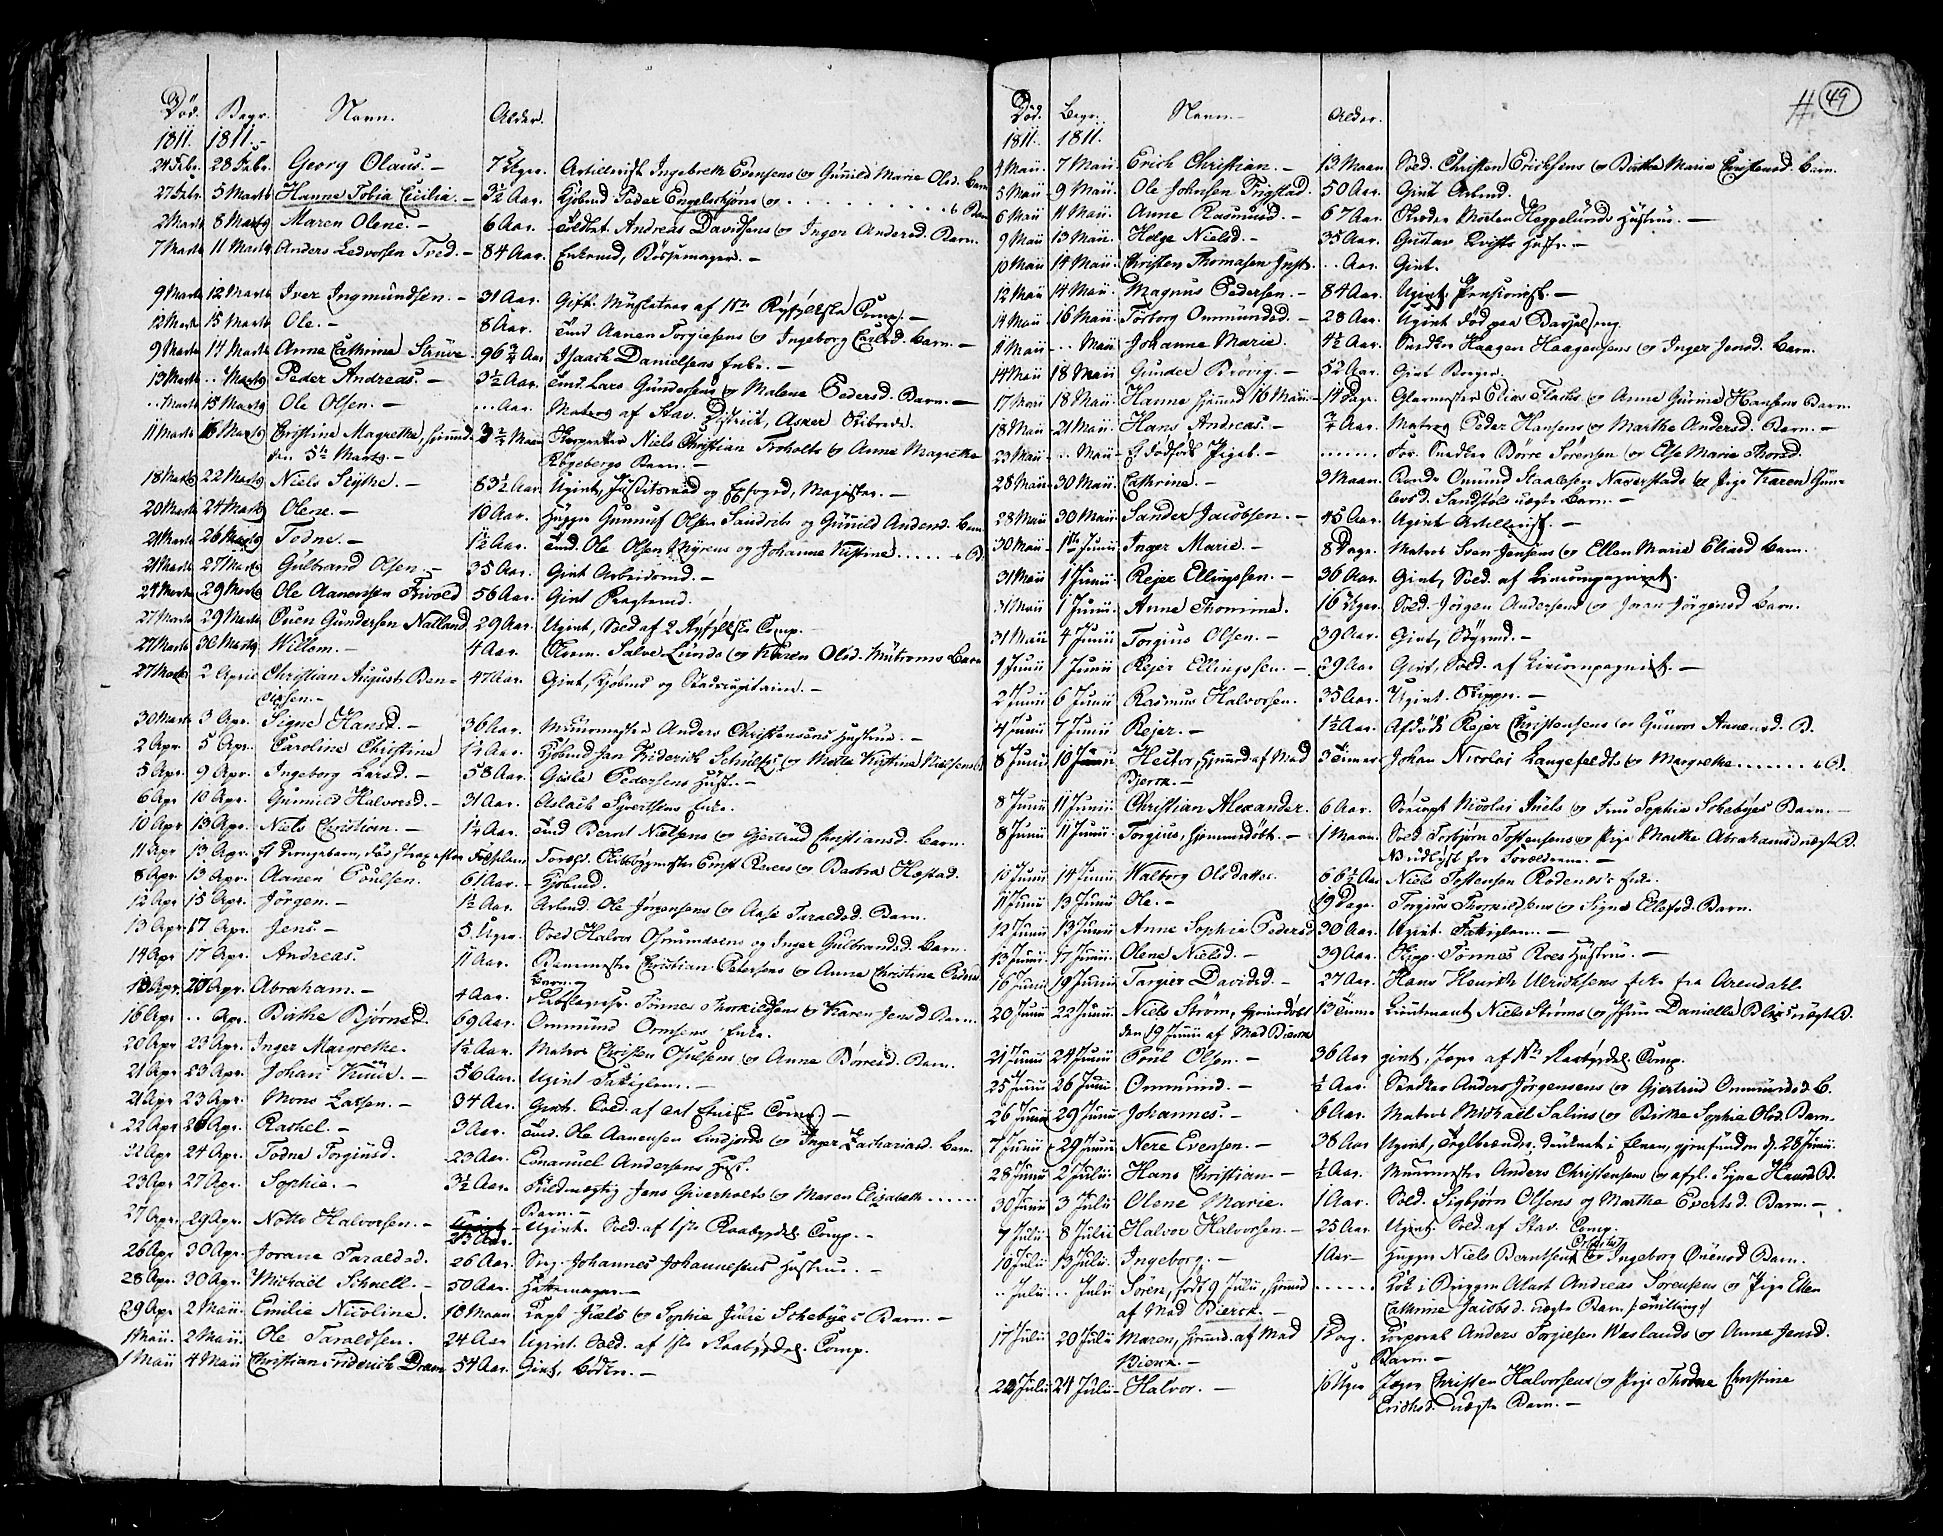 Död. Begr. Navn. Alder.
1811. 1811.
24 Febr. 28 Febr. Georg Olaus. 7 Uger. Artillerist Ingebreth Evensens og Gunild Marie Olsd. Barn
27 Febr. 5 Martz Hanne Tobia Cicilia. 3½ Aar. Kjøbmd Peder Engelschjøns og . . . . . . . B
2 Martz 8 Martz Maren Olene. 6 Aar. Soldat Andreas Davidsens og Inger Andersd. Barn.
7 Martz 11 Martz Anders Ledvorsen Tved. 84 Aar. Enkemd, Bössemager.
9 Martz 12 Martz Iver Ingmundsen. 31 Aar. Gift. Musketeer af Ryfylkske Comp.
12 Martz 15 Martz Ole. 8 Aar. Tmd Aanen Torgiesens og Ingeborg Carlsd. Barn.
9 Martz 14 Martz Anne Cathrine Strüve 96¾ Aar Isaach Danielsens Enke.
13 Martz .. Martz Peder Andreas. 3½ Aar. Tmd. Lars Gundersens og Malene Pedersd. Barn.
.. Martz 15 Martz Ole Olsen. ... Aar. Matros af Stav. District, Asker Skibrede.
11 Martz 16 Martz Cristine Magrethe, hjemmd Maan Niels Christian Froholts og Anne Magrethe
den 5te Martz. Kögebergs Barn.
18 Martz 22 Martz Niels Seyhe. 83½ Aar. Ugivt, Justitsraad og Byfoged, Magister.
20 Martz 24 Martz Olene. 10 Aar. Gunnuf Olsen Sandvits og Gunild Andersd. Barn
21 Martz 26 Martz Todne. 1½ Aar. Tmd. Ole Olsen Myrens og Johanne Kistine . . . . . B.
21 Martz 27 Martz Gulbrand Olsen. 35 Aar. Givt Arbeidsmd.
24 Martz 29 Martz Ole Aanensen Tveved 56 Aar. Givt
27 Martz 29 Martz Ouen Gundersen Natland 29 Aar. Ugivt, Sold. af 2 Ryfylkske Comp.
27 Martz 30 Martz Willem. 4 Aar. Salve Lunds og Karen Olsd. Barn
27 Martz 2 April Christian August Ben- 47 Aar. Givt, Kjøbmd og Stadscapitaine.
30 Martz 3 Apr. Signe Hansd. 36 Aar. Muurmester Anders Christensens Hustrue.
2 Apr. 5 Apr. Caroline Christine 1½ Aar. Kjøbmd Jan Friderick Schultzes og Mette Kistine Nielsens B
5 Apr. 9 Apr. Ingeborg Larsd. 58 Aar. Gisle Pedersens Hust.
6 Apr 10 Apr. Gunnild Halvorsd. 31 Aar. Aslach Sivertsens Enke.
10 Apr 13 Apr. Niels Christian. 1½ Aar. Tmd Bernt Nielsens og Gjertrud Christiansd. Barn.
11 Apr 13 Apr. Et Drengebarn, død strax efter Födselen Skibsbygmester Ernst Rners og Barbra Hestad.
8 Apr. 13 Apr. Aanen Poulsen. 61 Aar. Kjöbmd.
12 Apr 15 Apr. Jörgen. 1½ Aar. Arbmd. Ole Jörgensens og Aase Taraldsd. Barn.
13 Apr. 17 Apr. Jens. 5 Uger. Sold Halvor Osmundsens og Inger Gulbrandsd. Barn.
14 Apr. 17 Apr. Andreas. 11 Aar. Christian Petersens og Anne Christine
Barn.
18 Apr. 20 Apr. Abraham. 4 Aar. Tönnes Thorkildsens og Karen Jensd. Barn.
16 Apr .. Apr. Birthe Björnsd. 69 Aar. Ommund Ormsens Enke.
20 Apr 23 Apr. Inger Margrethe. 1½ Aar. Matros Christen Olsens og Anne Börresd. Barn.
21 Apr. 23 Apr. Johan Knur. 56 Aar. Ugivt Fatiglem.
21 Apr 23 Apr. Mons Larsen. 34 Aar. Givt. Sold. af Comp.
22 Apr 26 Apr. Rachel. 3 Aar. Tmd. Ole Aanensen Lindjords og Inger Zachariasd. Barn.
22 Apr 24 Apr. Todne Torgiusd. 23 Aar. Emanuel Andersens Hust.
23 Apr 27 Apr. Sophie. 3½ Aar. Fuldmægtig Jens Giverholts og Maren Elisabeth . . . . .
Barn.
27 Apr. 29 Apr. Notto Halvorsen. 23 Aar. Ugivt. Sold. af 1ste Raabygdel. Comp.
26 Apr 30 Apr. Jorane Taraldsd. 26 Aar. Serg. Johannes Johannesens Hustrue.
28 Apr. 30 Apr. Michael Schnell. 50 Aar. Hattemager.
29 Apr 2 Maii. Emilie Nicoline. 10 Maan Capt Juels og Sophie Julie Schebyes Barn.
1 Maii. 2 Maii. Ole Taraldsen. 24 Aar Ugivt. Sold. af 1ste Raabygdel. Comp.
1 Maii 4 Maii Christian Friderick Dram 54 Aar. Givt, Böd.
49
Död. Begr. Navn. Alder.
1811. 1811.
4 Maii 7 Maii Erich Christian. 13 Maan Sold. Christen Ericksens og Birthe Marie Christensd. Barn.
5 Maii 9 Maii. Ole Johnsen Frigstad. 50 Aar. Givt Arbmd.
6 Maii 11 Maii. Anne Rasmusd. 67 Aar. Morten Heggelunds Hustrue.
9 Maii 13 Maii. Helge Nielsd. 35 Aar. Gustav Qvists Hustr.
10 Maii 14 Maii. Christen Thomasen .. Aar. Givt.
12 Maii 14 Maii. Magnus Pedersen. 84 Aar. Ugivt. Pensionist.
14 Maii 16 Maii. Torborg Ommundsd. 28 Aar. Ugivt död paa Barselseng.
4 Maii .. Maii Johanne Marie. 4½ Aar. Snedker Haagen Haagensens og Inger Jensd. Barn.
14 Maii 18 Maii Gunder Brövig. 52 Aar. Givt Borger.
17 Maii 18 Maii Hanne hjemmd 16 Maii 14 Dage. Glarmester Elias Flachs og Anne Gurine Hansens Barn
18 Maii 21 Maii. Hans Andreas. ¾ Aar. Matros Peder Hansens og Marthe Andersd. Barn.
23 Maii .. Maii Et dödfödt Pigeb. ........ For. Snedker Börre Sörensen og Else Marie Thorsd.
28 Maii 30 Maii. Cathrine. 3 Maan. Omund Staalesen Naverstads og Pige Karen Gun-
levsd. Sandstöls uægte Barn.
28 Maii 30 Maii Sander Jacobsen. 45 Aar. Ugivt Artillerist.
30 Maii 1ste Junii Inger Marie. 8 Dage. Matros Sven Jensens og Ellen Marie Eliasd Barn.
31 Maii 1 Junii Rejer Ellingssen. 36 Aar. Givt, Sold. af Livcompagniet.
31 Maii 1 Junii. Anne Thomine. 16 Uger Sold. Jörgen Andersens og Joran Jörgensd Barn.
31 Maii 4 Junii Torgius Olsen. 39 Aar. Givt,
1 Junii 1 Junii Rejer Ellingssen. 39 Aar Givt, Sold. af Livcompagniet.
2 Junii 6 Junii Rasmus Halvorsen. 35 Aar. Ugivt. Skipper.
4 Junii 7 Junii Rejer. 1½ Aar. Afdöde Rejer Christensens og Gunvor Aanensd. B.
8 Junii 10 Junii Hector, hjemmd af Mad 3 Timer Johan Nicolai Langefeldts og Margrethe . . . . . B.
Bierck.
8 Junii 11 Junii Christian Alexander. 6 Aar. Nicolai Juels og Frue Sophie Schebyes Barn.
8 Junii 11 Junii. Torgius, hjemmedöbt. 1 Maan. Sold. Torbjörn Tostensens og Pige Marthe Abrahamsd uægte B.
NB udlyst for Forældrene.
10 Junii 14 Junii Walborg Olsdatter 66½ Aar Niels Tostensen Rodenes's Enke.
11 Junii 13 Junii Ole. 19 Dage. Torgius Thorkildsens og Signe Ellefsd. Barn.
12 Junii 13 Junii Anne Sophie Pedersd 30 Aar. Ugivt. Fatiglem.
13 Junii 17 Junii. Olene Nielsd. 39 Aar. Skip. Tönnes Roes Hustrue.
16 Junii 19 Junii Targier Davidsd. 27 Aar. Hans Henrich Ulrichsens Enke fra Arendahl.
20 Junii 22 Junii Niels Ström, hjemmedöbt 13 Timer Lieutenant Niels Ströms og Danielle Blix's uægte B.
den 19 Junii af Mad Bierck
21 Junii 24 Junii Poul Olsen. 36 Aar givt, Jæger af Raabygdel. Comp.
25 Junii 26 Junii Ommund. ½ Aar. Snedker Anders Jörgensens og Gjertrud Ommundsd. B.
26 Junii 29 Junii Johannes. 6 Aar. Matros Michael Salves og Birthe Sophie Olsd. Barn.
7 Junii 29 Junii Nere Evensen. 38 Aar Ugivt, Teglbrænder, druknet i Elven, gjenfunden d. 28 Junii.
28 Junii 2 Julii Hans Christian ½ Aar. Muurmester Anders Christensens og afgl. Signe Hansd B.
30 Junii 3 Julii Olene Marie. 1 Aar. Sold. Sigbjörn Olsens og Marthe Evertsd. Barn.
7 Julii 8 Julii Halvor Halvorsen. 25 Aar Ugivt. Sold. af Stav. Comp.
10 Julii 13 Julii. Ingeborg. 1 Aar Niels Berntsens og Ingeborg Ouensd Barn.
.. Julii .. Julii Sören, födt 9 Julii, hjemmd ....... Kok i Briggen Alart Andreas Sörensens og Pige Ellen
af Mad Bierck. Cathrine Jacobsd. uægte Barn, tvilling.
17 Julii 20 Julii Maren, hjemmd. af Mad 1 Dag. Corporal Anders Torjesen Waslands og Anne Jensd.
Bierck. Barn.
22 Julii 24 Julii Halvor. 16 Uger Jæger Christen Halvorsens og Pige Thodne Christine
Erichsd. uægte Barn.